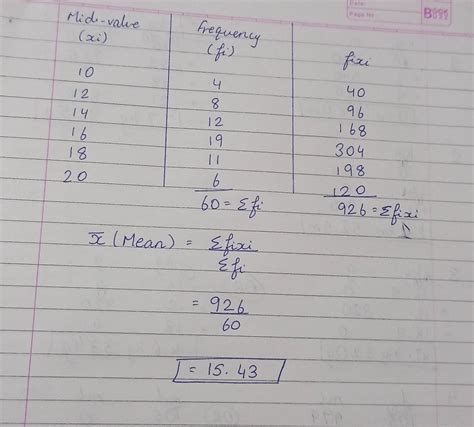 Date:
Page No:
Mid-value Frequency
(xi) (fi) fixi
10 4 40
12 8 96
14 12 168
16 19 304
18 11 198
20 6 120
60 = Σfi 926 = Σfixi
x̄ (Mean) = Σfixi
Σfi
= 926
60
= 15.43